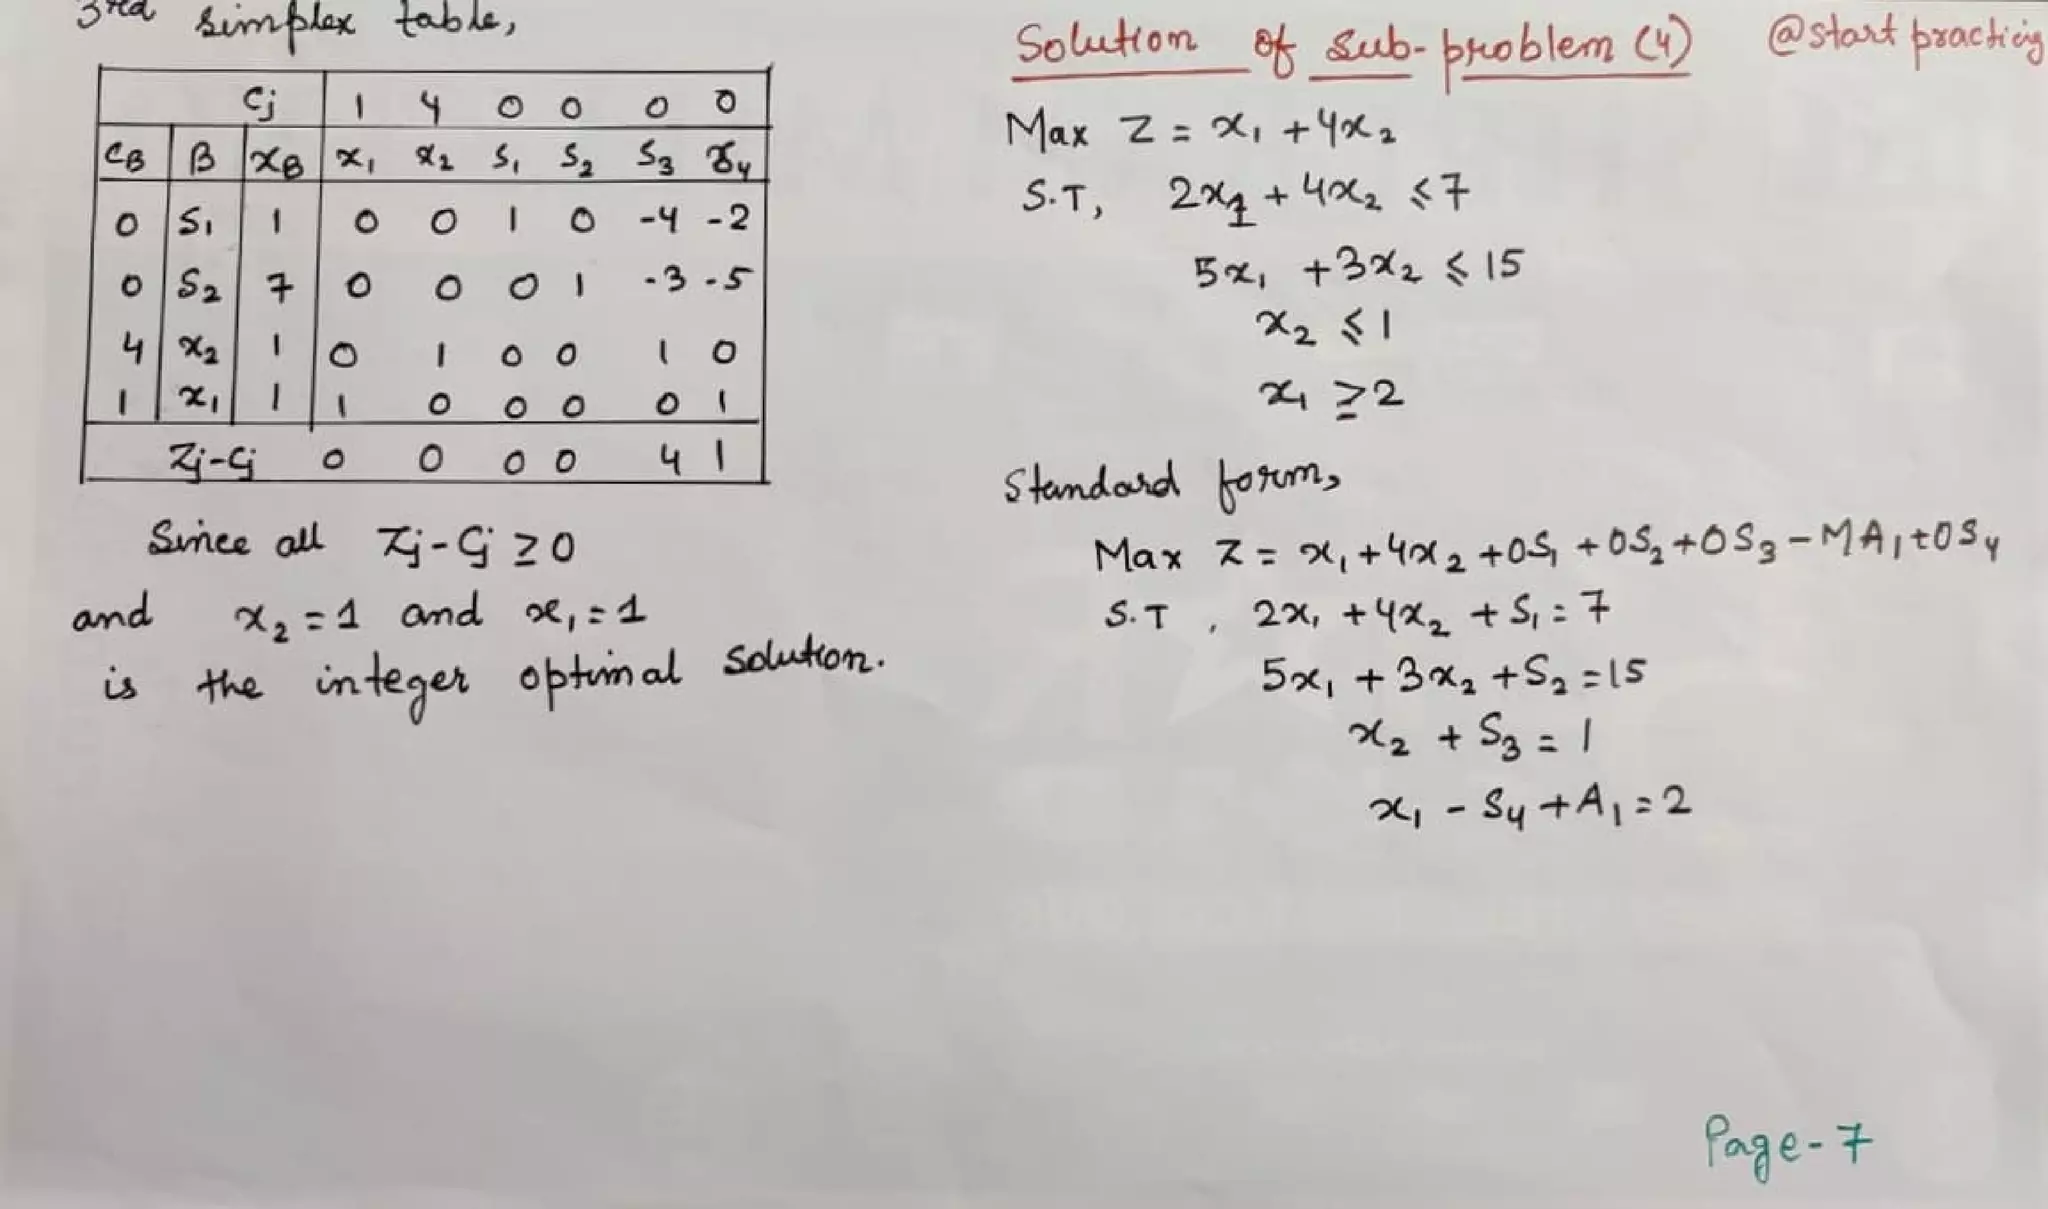 3rd simplex table,
Cj 1 4 0 0 0 0
CB B XB x₁ x₂ S₁ S₂ S₃ S₄
0 S₁ 1 0 0 1 0 -4 -2
0 S₂ 7 0 0 0 1 -3 -5
4 x₂ 1 0 1 0 0 1 0
1 x₁ 1 1 0 0 0 0 1
Zj-Cj 0 0 0 0 4 1
Since all Zj-Cj ≥ 0
and x₂ = 1 and x₁ = 1
is the integer optimal solution.
Solution of sub-problem (4)
@start practicing
Max Z = x₁ + 4x₂
S.T, 2x₁ + 4x₂ ≤ 7
5x₁ + 3x₂ ≤ 15
x₂ ≤ 1
x₁ ≥ 2
Standard form,
Max Z = x₁ + 4x₂ + 0S₁ + 0S₂ + 0S₃ - MA₁ + 0S₄
S.T, 2x₁ + 4x₂ + S₁ = 7
5x₁ + 3x₂ + S₂ = 15
x₂ + S₃ = 1
x₁ - S₄ + A₁ = 2
Page-7